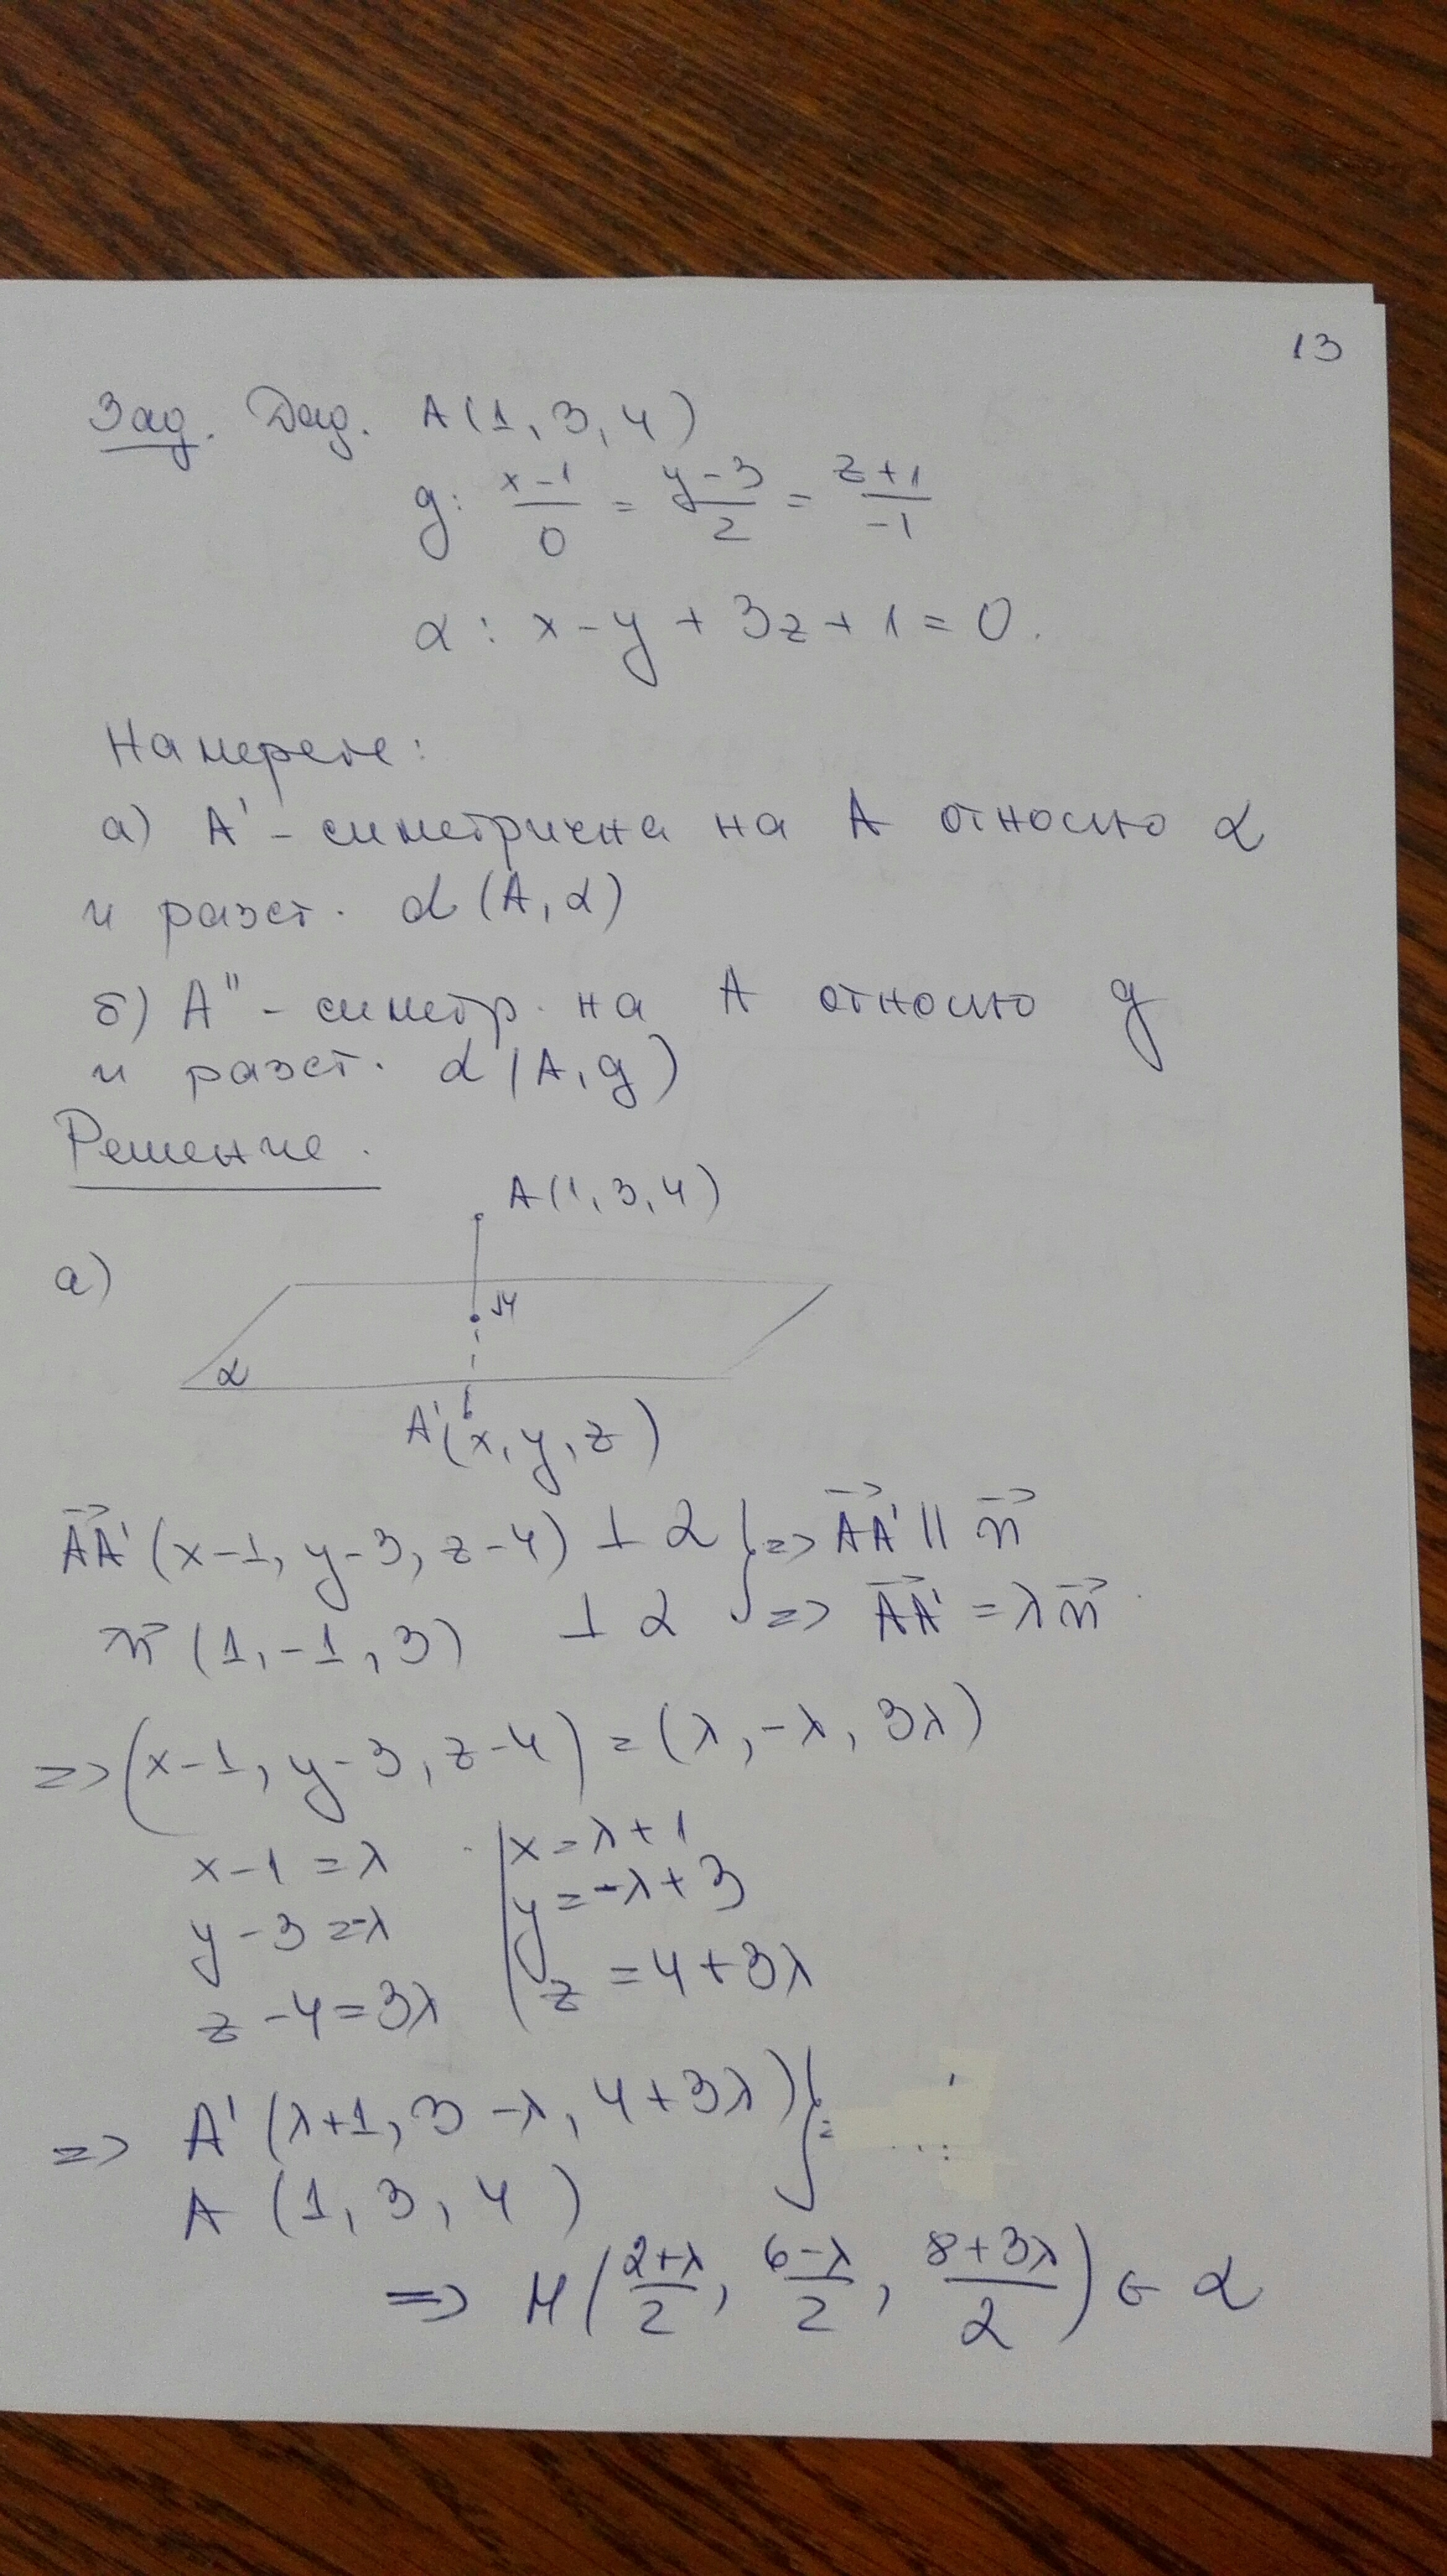 13
Зад. Дад. A(1, 3, 4)
g: x-1/0 = y-3/2 = z+1/-1
α: x-y+3z+1=0.
Намерете:
а) A' - симетрична на A относно α
и разст. d(A, α)
б) A'' - симетр. на A относно g
и разст. d(A, g)
Решение.
A(1, 3, 4)
а)
M
α
A'(x, y, z)
AA'(x-1, y-3, z-4) ⊥ α } => AA' || n
n(1, -1, 3) ⊥ α => AA' = λn
=> (x-1, y-3, z-4) = (λ, -λ, 3λ)
x-1=λ | x=λ+1
y-3=-λ | y=-λ+3
z-4=3λ | z=4+3λ
=> A'(λ+1, 3-λ, 4+3λ) } =
A(1, 3, 4)
=> M(2+λ/2, 6-λ/2, 8+3λ/2) ∈ α